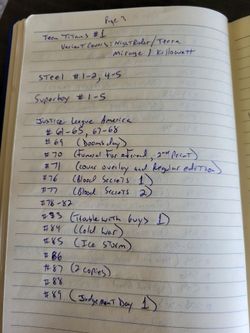 Page 7
Teen Titans #1
Variant Covers: Nightrider / Terra
Mirage / Killowatt
Steel #1-2, 4-5
Superboy #1-5
Justice League America
#61-65, 67-68
#69 (Doomsday)
#70 (Funeral For a Friend, 2nd Print)
#71 (cover overlay and Regular edition)
#76 (Blood Secrets 1)
#77 (Blood Secrets 2)
#78-82
#83 (Trouble with Guys 1)
#84 (Cold War)
#85 (Ice Storm)
#86
#87 (2 copies)
#88
#89 (Judgement Day 1)